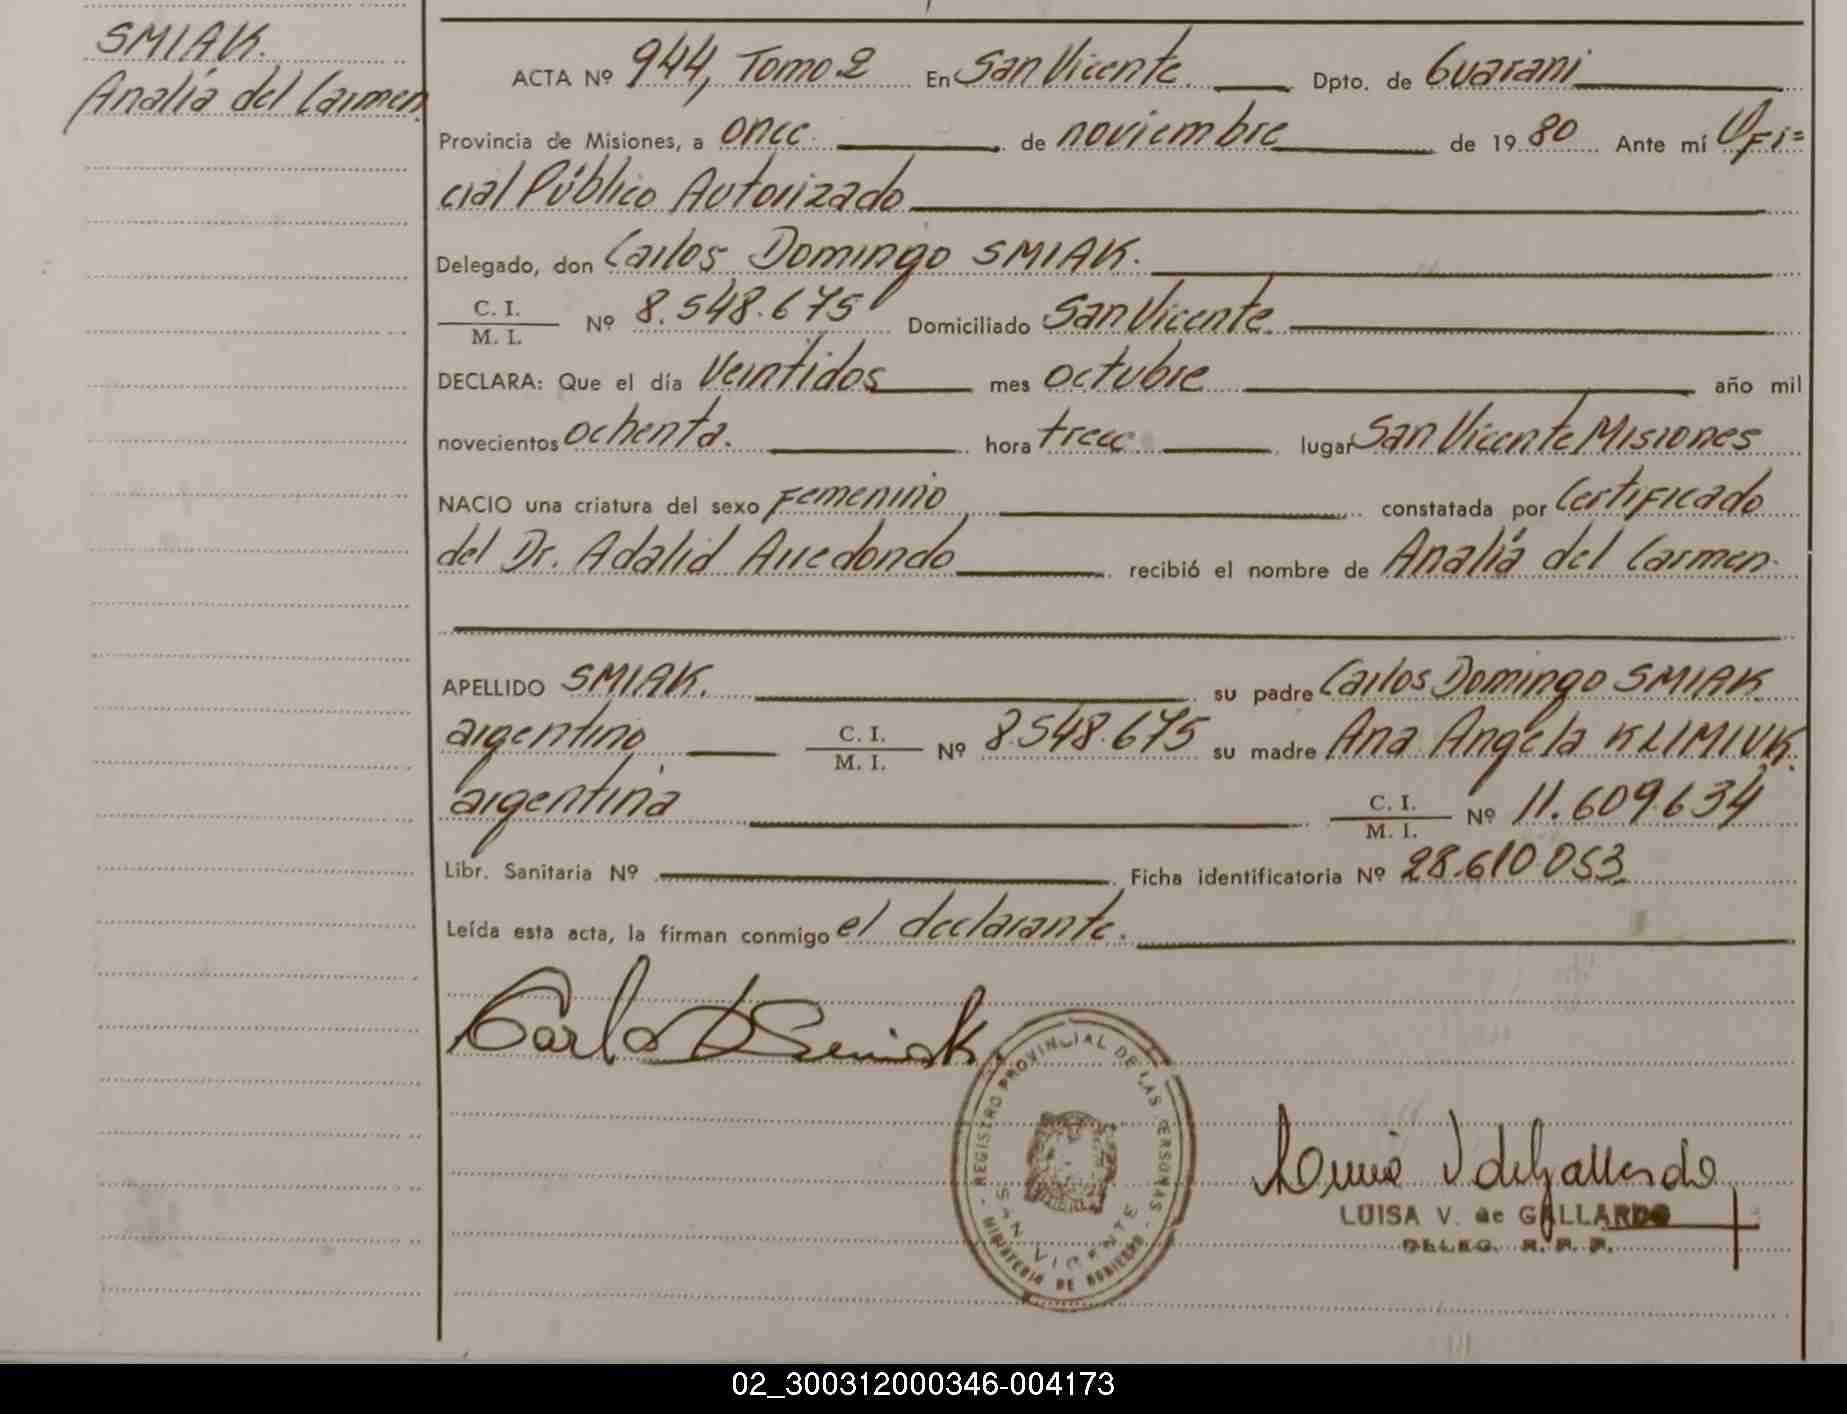 SMIAK.
Analía del Carmen
ACTA Nº 944, Tomo 2 En San Vicente. Dpto. de Guarani
Provincia de Misiones, a once de noviembre de 19 80 Ante mí Ofi=
cial Público Autorizado
Delegado, don Carlos Domingo SMIAK.
C. I.
M. I. Nº 8.548.675 Domiciliado San Vicente
DECLARA: Que el día veintidos mes octubre año mil
novecientos ochenta. hora trece lugar San Vicente, Misiones
NACIO una criatura del sexo Femenino constatada por Certificado
del Dr. Adalid Arredondo recibió el nombre de Analía del Carmen
APELLIDO SMIAK. su padre Carlos Domingo SMIAK
argentino, C. I.
M. I. Nº 8.548.675 su madre Ana Angela KLIMIUK.
argentina C. I.
M. I. Nº 11.609.634
Libr. Sanitaria Nº Ficha identificatoria Nº 28.610.053
Leída esta acta, la firman conmigo el declarante.
Carlos D Smiak
REGISTRO PROVINCIAL DE LAS PERSONAS
SAN VICENTE
MINISTERIO DE GOBIERNO
Luisa V de Gallardo
LUISA V. de GALLARDO
DELEG. R. P. P.
02_300312000346-004173